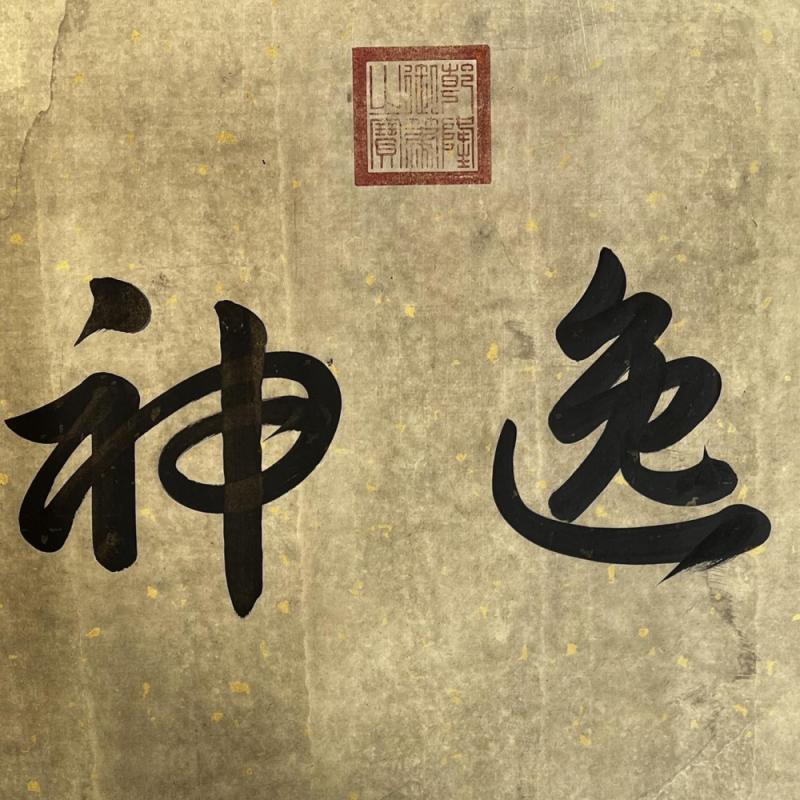 逸神
乾隆
御筆
之寶